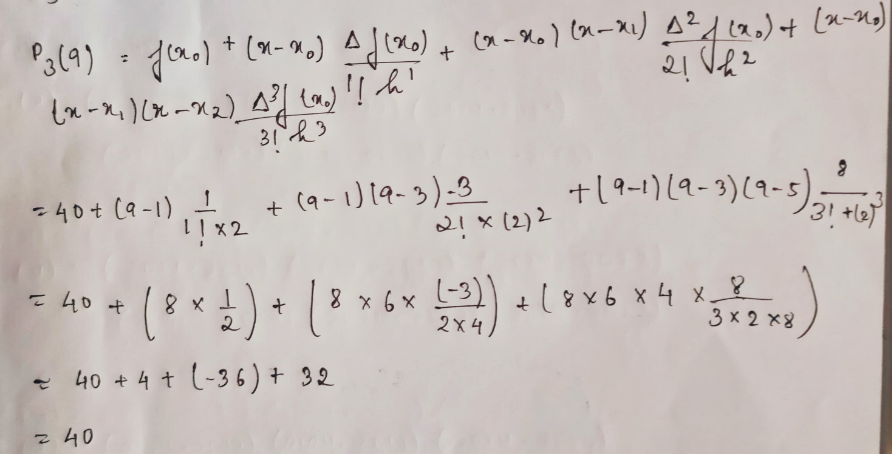 P₃(9) = f(x₀) + (x-x₀) Δf(x₀)/1! h¹ + (x-x₀)(x-x₁) Δ²f(x₀)/2! h² + (x-x₀)
(x-x₁)(x-x₂) Δ³f(x₀)/3! h³
= 40 + (9-1) 1/1! x 2 + (9-1)(9-3) -3/2! x (2)² + (9-1)(9-3)(9-5) 8/3! + (2)³
= 40 + (8 x 1/2) + (8 x 6 x (-3)/2x4) + (8x6 x 4 x 8/3x2x8)
= 40 + 4 + (-36) + 32
= 40